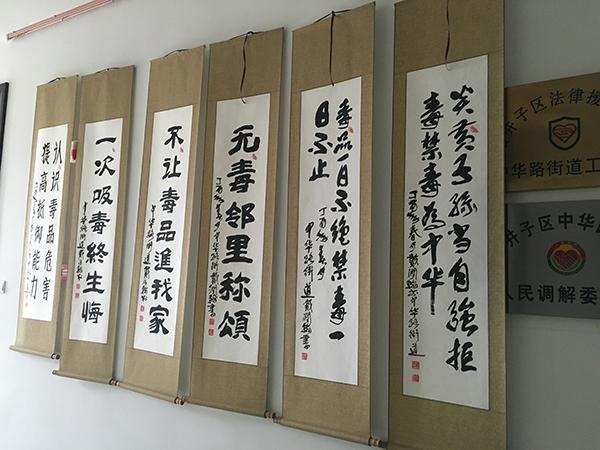 认识毒品危害
提高抵御能力
一次吸毒終生悔
不让毒品進我家
无毒邻里称頌
毒品一日不绝禁毒一
日不止
炎黄子孙当自强拒
毒禁毒为中华
井子区法律援
中华路街道工
井子区中华
人民调解委